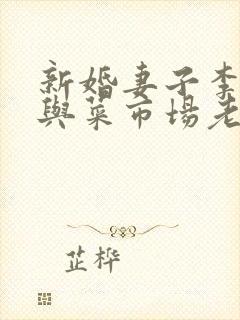 新婚妻子李
與菜市場老
芷桦